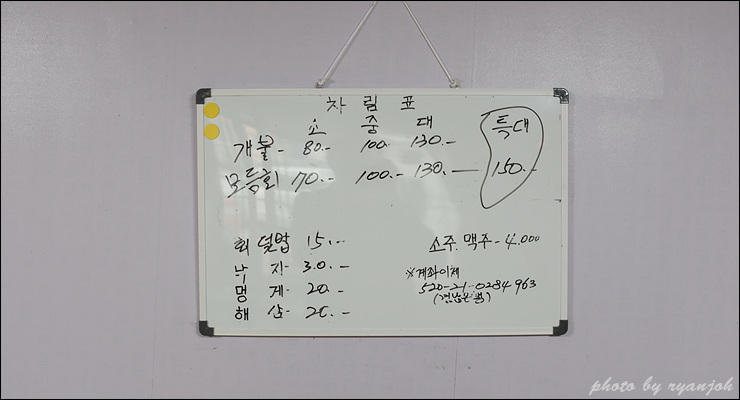 차림표
소 중 대 특대
개불 - 80.- 100.- 130.-
모듬회 70.- 100.- 130.- 150.-
회덮밥 15.-
낙지 30.-
멍게 20.-
해삼 20.-
소주 맥주 - 4.000
※계좌이체
520-21-0284963
(경남은행)
photo by ryanjoh